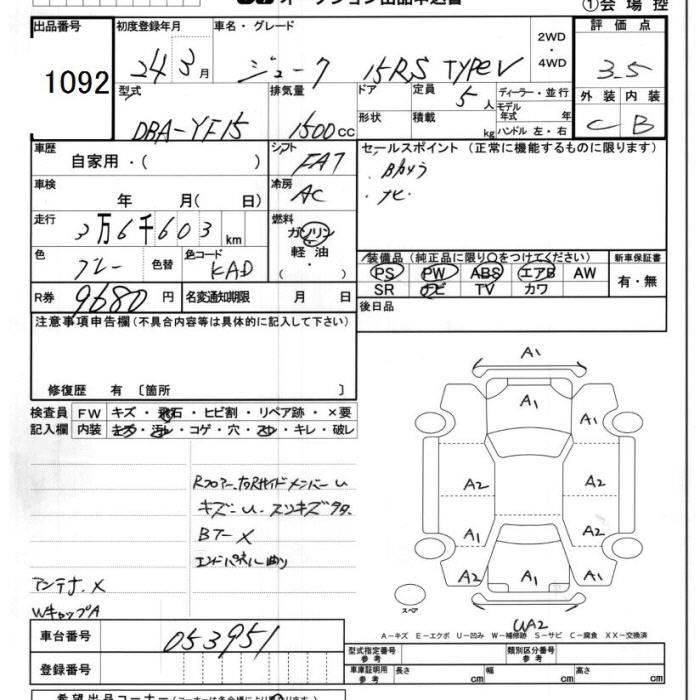 オークション出品申込書 ①会場控
出品番号 初度登録年月 車名・グレード 2WD・4WD 評価点
1092 24 3月 ジューク 15RS TYPE V 3.5
型式 排気量 ドア 定員 5人 ディーラー・並行 外装 内装
DBA-YF15 1500cc 形状 積載 kg モデル年式 年 ハンドル 左・右 C B
車歴 自家用・( ) シフト FAT セールスポイント (正常に機能するものに限ります)
車検 年 月( 日) 冷房 AC ナビ
走行 3万6千603km 燃料 ガソリン 軽油 ・( )・
色 グレー 色替 色コード KAD 装備品 (純正品に限り○をつけてください) 新車保証書
PS PW ABS エアB AW 有・無
SR ナビ TV カワ
R券 9680円 名変通知期限 月 日 後日品
注意事項申告欄(不具合内容等は具体的に記入して下さい)
修復歴 有 〔箇所 〕
検査員 FW キズ・飛石・ヒビ割・リペア跡・×要
記入欄 内装 キズ・汚レ・コゲ・穴・スレ・キレ・破レ
A1
A1 A1
A2 A2
A1 A2
A2 A1 A1
スペア
WA2
キズU.スリキズ
Bドア X
エンドパネル曲り
アンテナ.X
WキャップA
A-キズ E-エクボ U-凹み W-補修跡 S-サビ C-腐食 XX-交換済
車台番号 053951 型式指定番号 参考 類別区分番号 参考
登録番号 車庫証明用 参考 長さ cm 幅 cm 高さ cm
希望出品コーナー